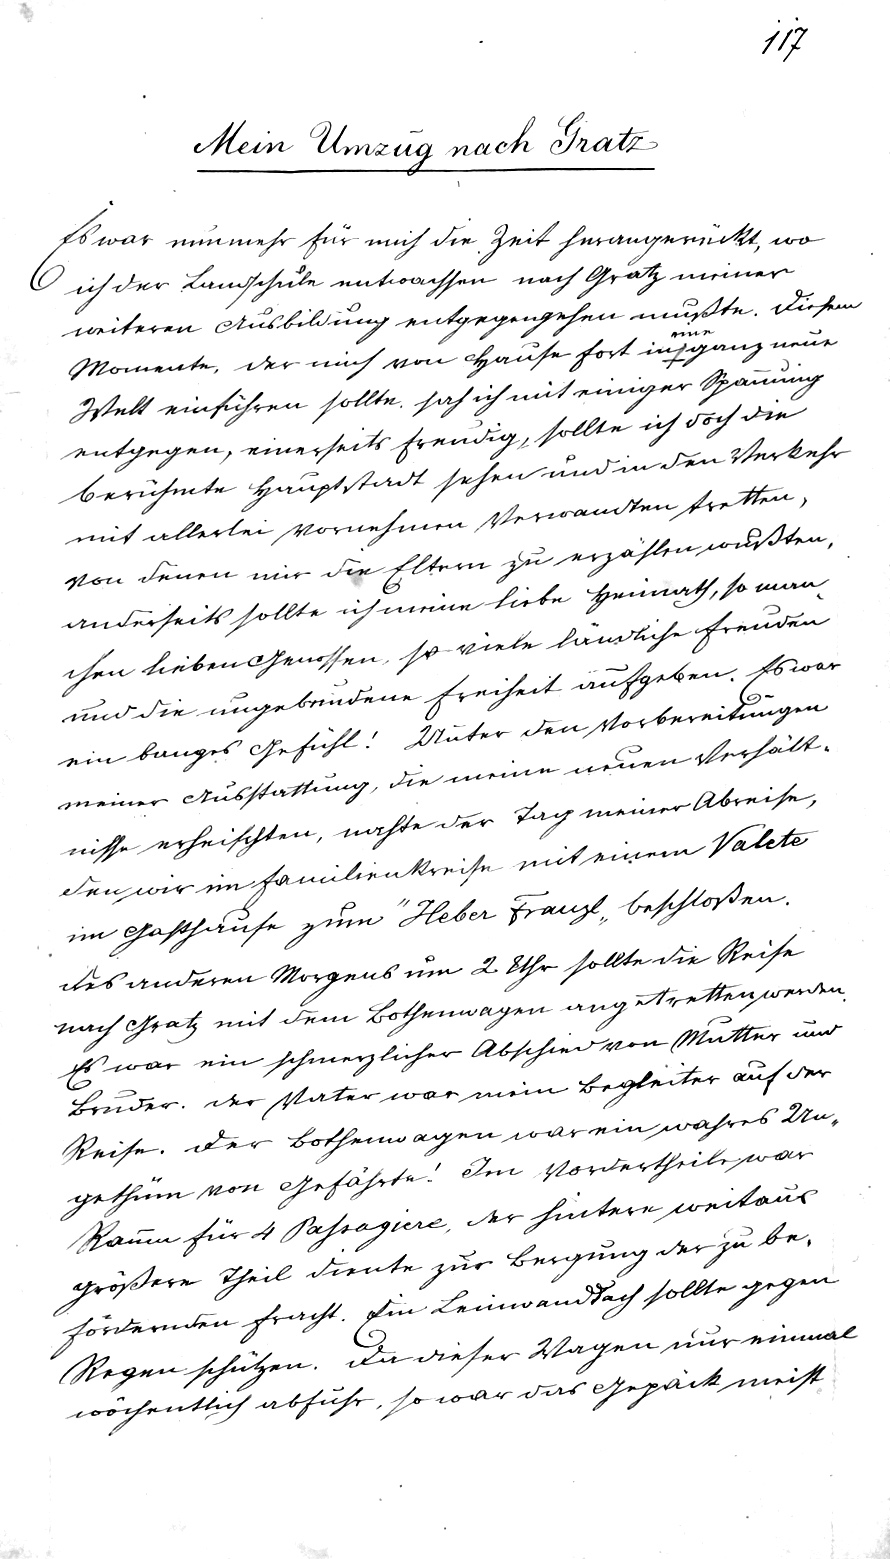 117
Mein Umzug nach Gratz
Es war nunmehr für mich die Zeit herangerückt, wo
ich der Landschule entwachsen nach Gratz meiner
weiteren Ausbildung entgegengehen mußte. Diesem
Momente, der mich von Hause fort in eine ganz neue
Welt einführen sollte, sah ich mit einiger Spannung
entgegen, einerseits freudig, sollte ich doch die
berühmte Hauptstadt sehen und in den Verkehr
mit allerlei vornehmen Verwandten tretten,
von denen mir die Eltern zu erzählen wußten,
anderseits sollte ich meine liebe Heimath, so man-
chen lieben Genossen, so viele ländliche Freuden
und die ungebundene Freiheit aufgeben. Es war
ein banges Gefühl! Unter den Vorbereitungen
meiner Ausstattung, die meine neuen Verhält-
nisse erheischten, nahte der Tag meiner Abreise,
den wir im Familienkreise mit einem Valete
im Gasthause zum "Heber Franzl" beschloßen.
Des anderen Morgens um 2 Uhr sollte die Reise
nach Gratz mit dem Bothenwagen angetretten werden.
Es war ein schmerzlicher Abschied von Mutter und
Bruder. Der Vater war mein Begleiter auf der
Reise. Der Bothenwagen war ein wahres Un-
gethüm von Gefährte! Im Vordertheile war
Raum für 4 Passagiere, der hintere weitaus
größere Theil diente zur Bergung der zu be-
fördernden Fracht. Ein Leinwanddach sollte gegen
Regen schützen. Da dieser Wagen nur einmal
wöchentlich abfuhr, so war das Gepäck meist